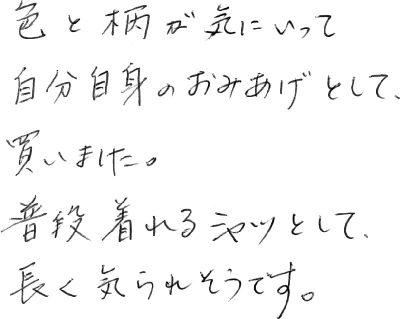 色と柄が気にいって
自分自身のおみあげとして、
買いました。
普段着れるシャツとして、
長く気られそうです。